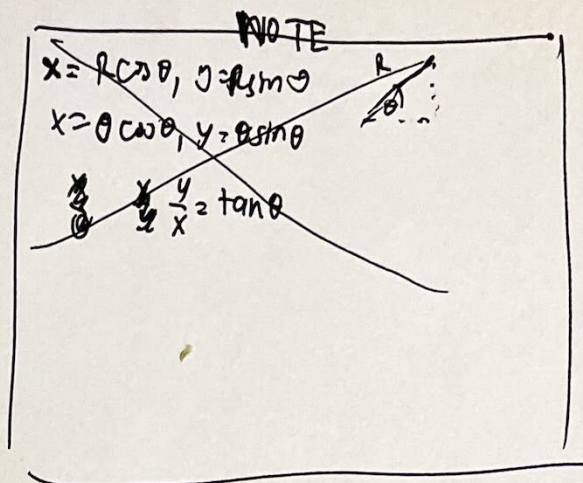 NOTE
x = R cos θ, y = R sin θ
R
θ
x = θ cos θ, y = θ sin θ
y/x = tan θ